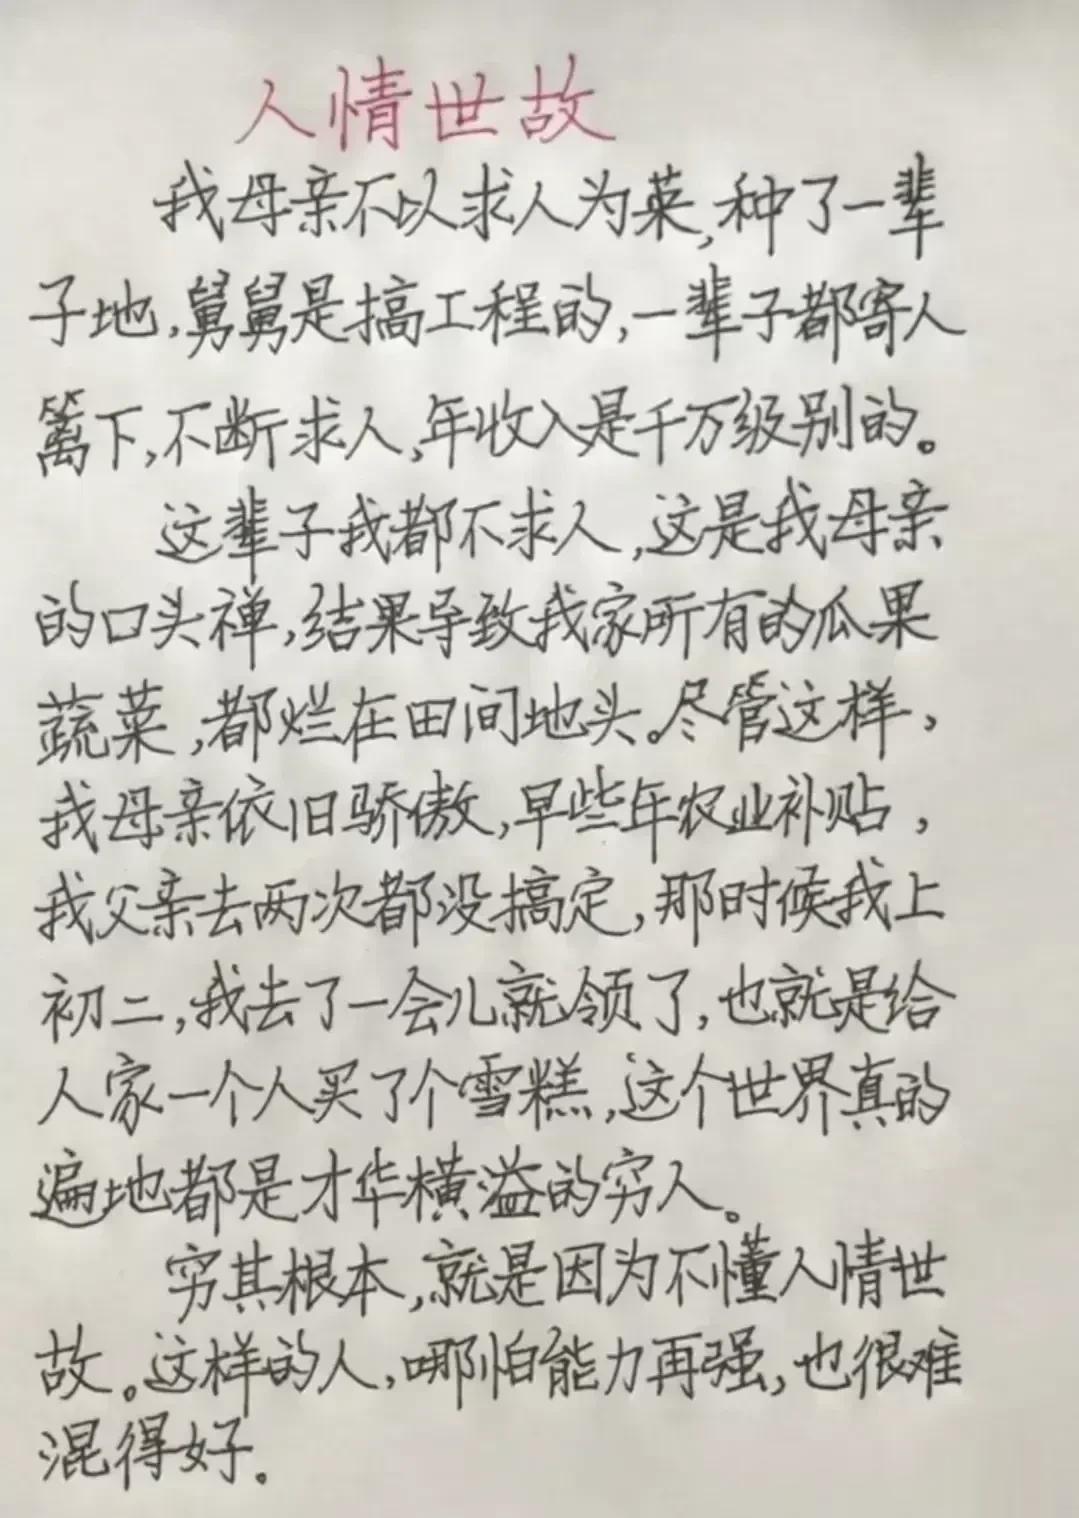 人情世故
我母亲不以求人为荣,种了一辈
子地,舅舅是搞工程的,一辈子都寄人
篱下,不断求人,年收入是千万级别的。
这辈子我都不求人,这是我母亲
的口头禅,结果导致我家所有的瓜果
蔬菜,都烂在田间地头。尽管这样,
我母亲依旧骄傲,早些年农业补贴,
我父亲去两次都没搞定,那时候我上
初二,我去了一会儿就领了,也就是给
人家一个人买了个雪糕,这个世界真的
遍地都是才华横溢的穷人。
穷其根本,就是因为不懂人情世
故。这样的人,哪怕能力再强,也很难
混得好。